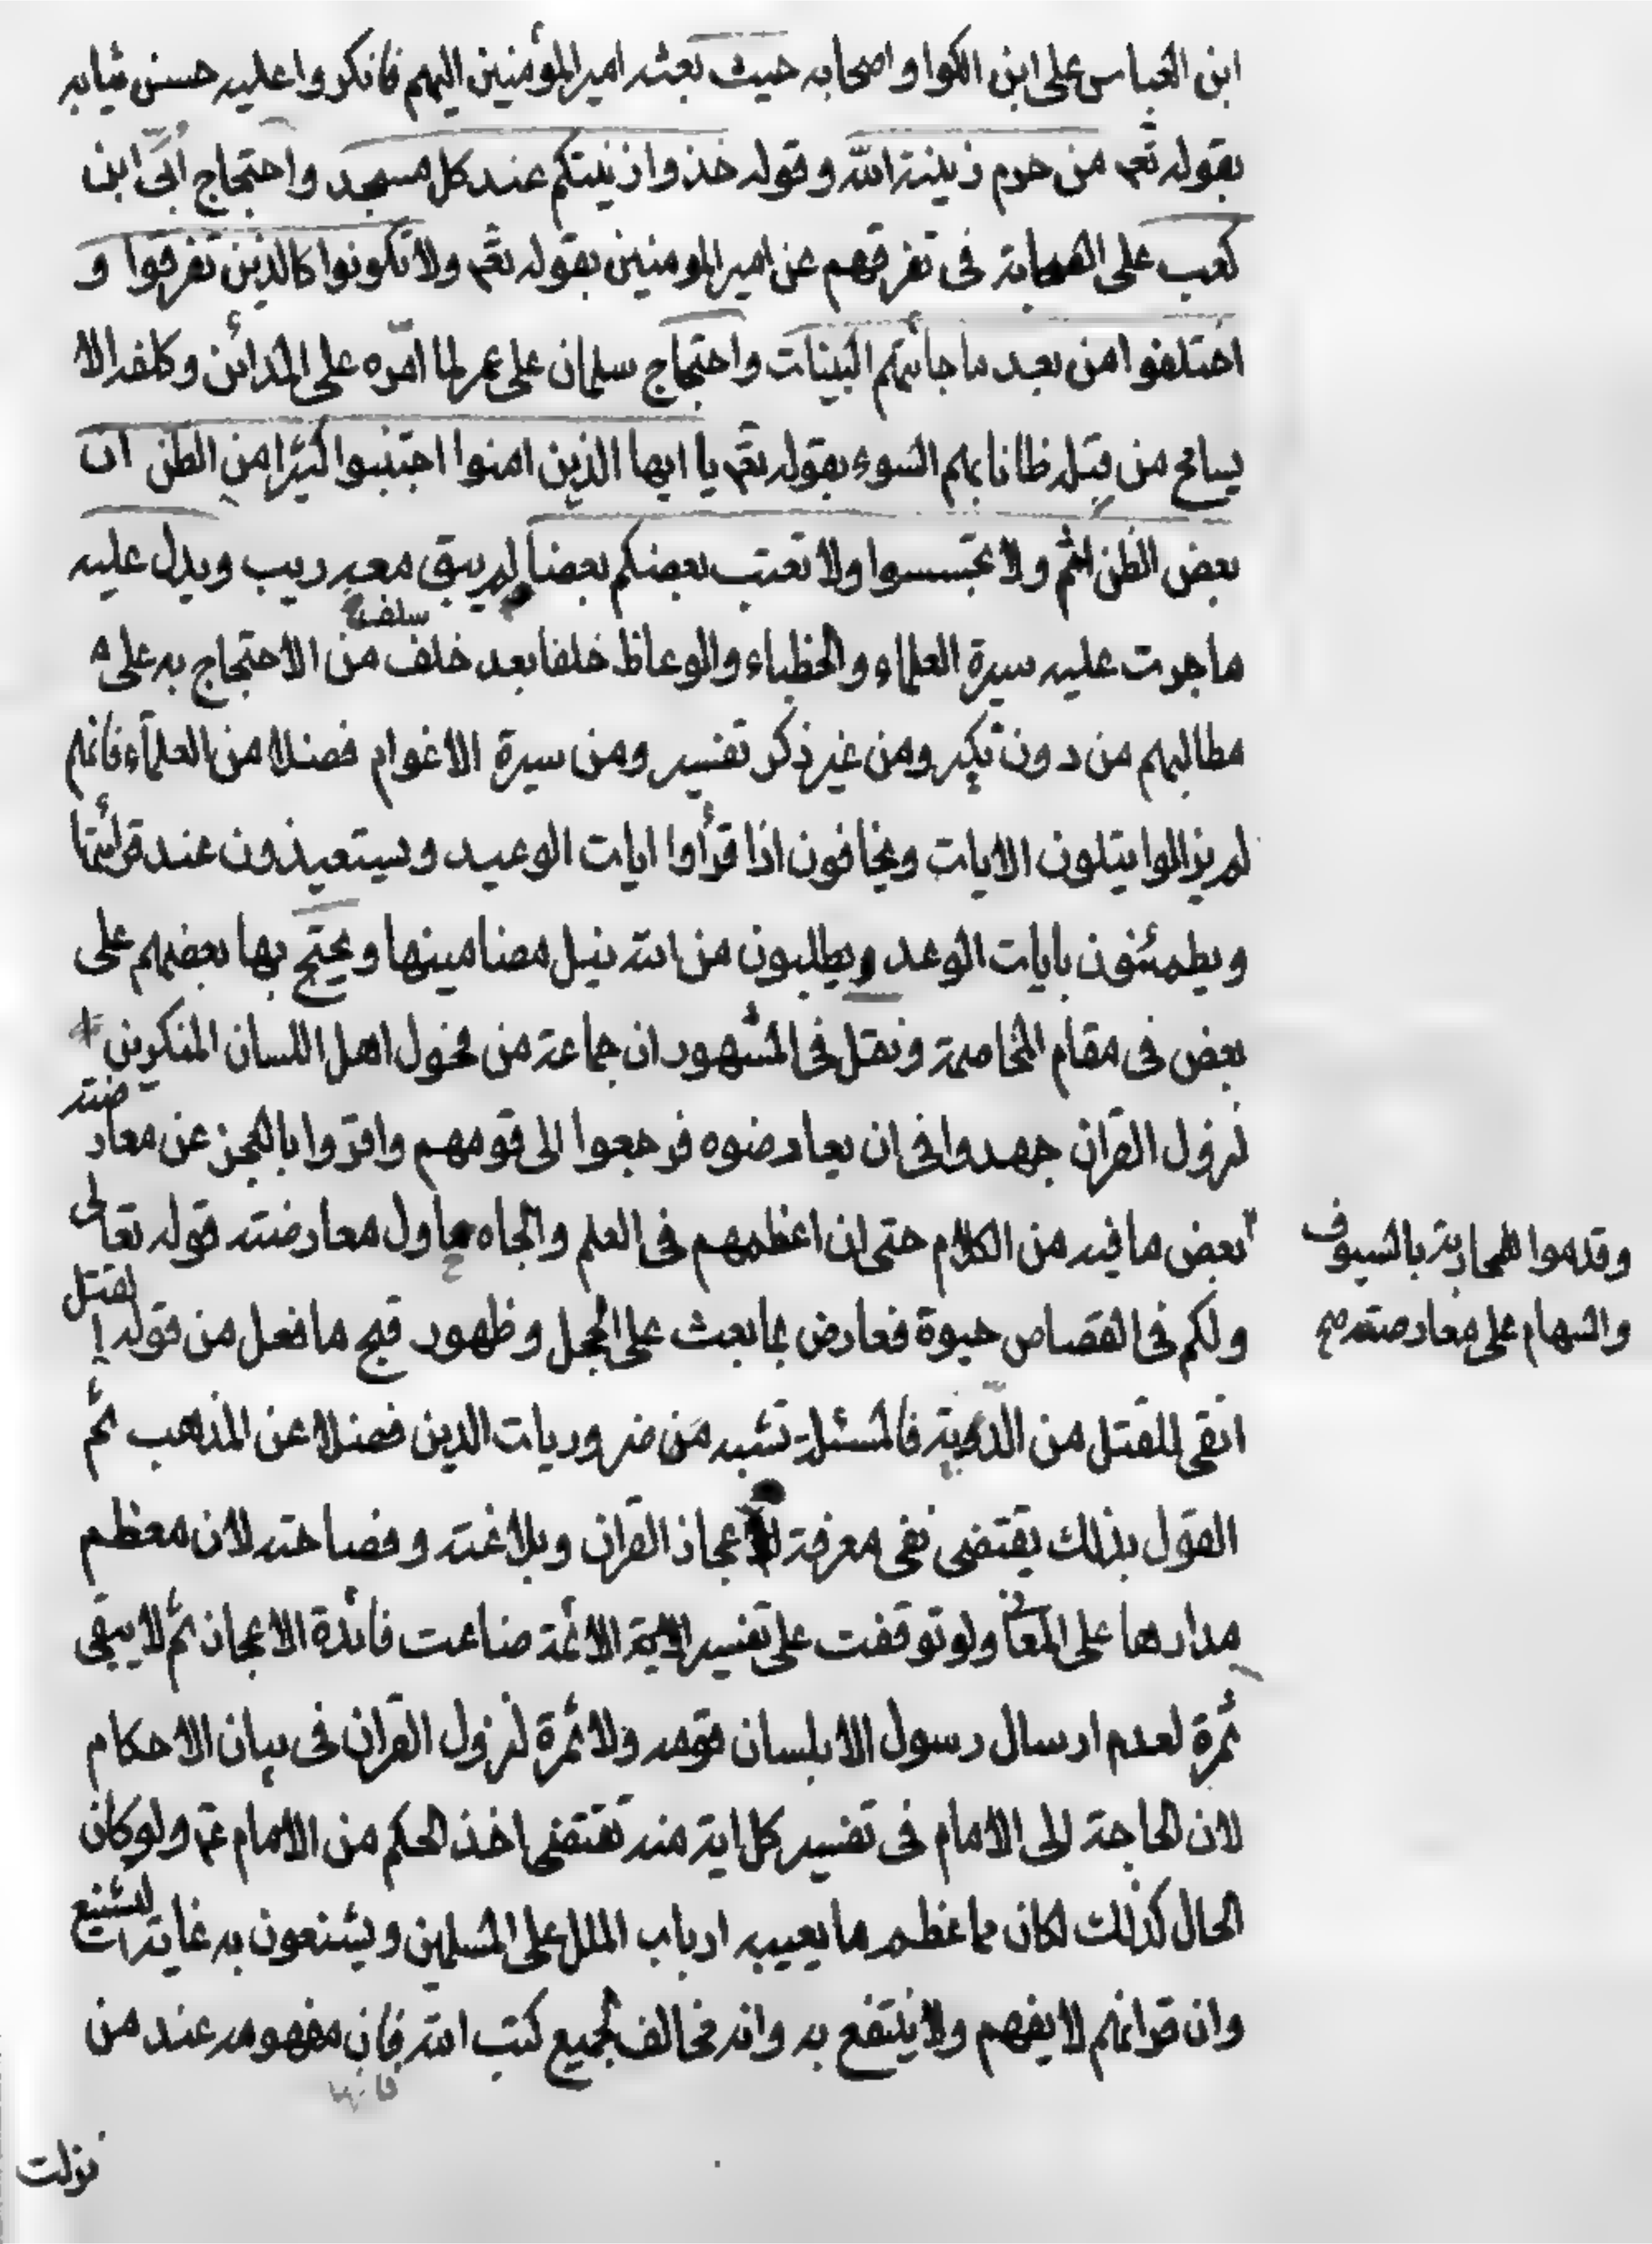 ابن العباس على ابن الكوا واصحابه حيث بعثه امير المؤمنين اليهم فانكروا عليه حسن ثيابه
بقوله تعم من حرم زينة الله وقوله خذوا زينتكم عند كل مسجد واحتجاج ابي ابن
كعب على الصحابة فى تفرقهم عن امير المومنين بقوله تعم ولا تكونوا كالذين تفرقوا و
اختلفوا من بعد ما جائتهم البينات واحتجاج سلمان على عمر لما امّره على المدائن وكلفه الا
يسامح من قبله ظانا بهم السوء بقوله تعم يا ايها الذين امنوا اجتنبوا كثيرا من الظن ان
بعض الظن اثم ولا تجسسوا ولا تغتب بعضكم بعضا لم يبق معه ريب ويدل عليه
ما جرت عليه سيرة العلماء والخطباء والوعاظ خلفا بعد خلف من الاحتجاج به على
سلف
مطالبهم من دون نكير ومن غير ذكر تفسير ومن سيرة الاعوام فضلا من العلماء فانهم
لم يزالوا يتلون الايات ويخافون اذا قرأوا ايات الوعيد ويستعيذون عند قرائتها
ويطمئنون بايات الوعد ويطلبون من الله نيل مضامينها ويحتج بها بعضهم على
بعض فى مقام المخاصمة ونقل فى المشهور ان جماعة من فحول اهل اللسان المنكرين
لنزول القران جهدوا فى ان يعارضوه فرجعوا الى قومهم واقروا بالعجز عن معارضته
بعض ما فيه من الكلام حتى ان اعظمهم فى العلم والجاه حاول معارضته قوله تعالى
وقدموا للمحاربة بالسيوف
والسهام على معارضته صح
ولكم فى القصاص حيوة فعارض بما بعث على الخجل وظهور قبح ما فعل من قوله القتل
اتقى للقتل من الدّية فالمسئلة تشبه من ضروريات الدين فضلا عن المذهب ثم
القول بذلك يقتضى نفى معرفة اعجاز القران وبلاغته وفصاحته لان معظم
مدارها على المعانى ولو توقفت على تفسير الائمة ضاعت فائدة الاعجاز ثم لا يبقى
ثمرة لعدم ارسال رسول الا بلسان قومه ولا ثمرة لنزول القران فى بيان الاحكام
لان الحاجة الى الامام فى تفسير كل اية منه تقتضى اخذ الحكم من الامام ع ولو كان
الحال كذلك لكان مما عظم ما يعيبه ارباب الملل على المسلمين ويشنعون به غاية التشنيع
وان قرانهم لا يفهم ولا ينتفع به وانه مخالف لجميع كتب الله فان مفهومه عند من
فانها
نزلت